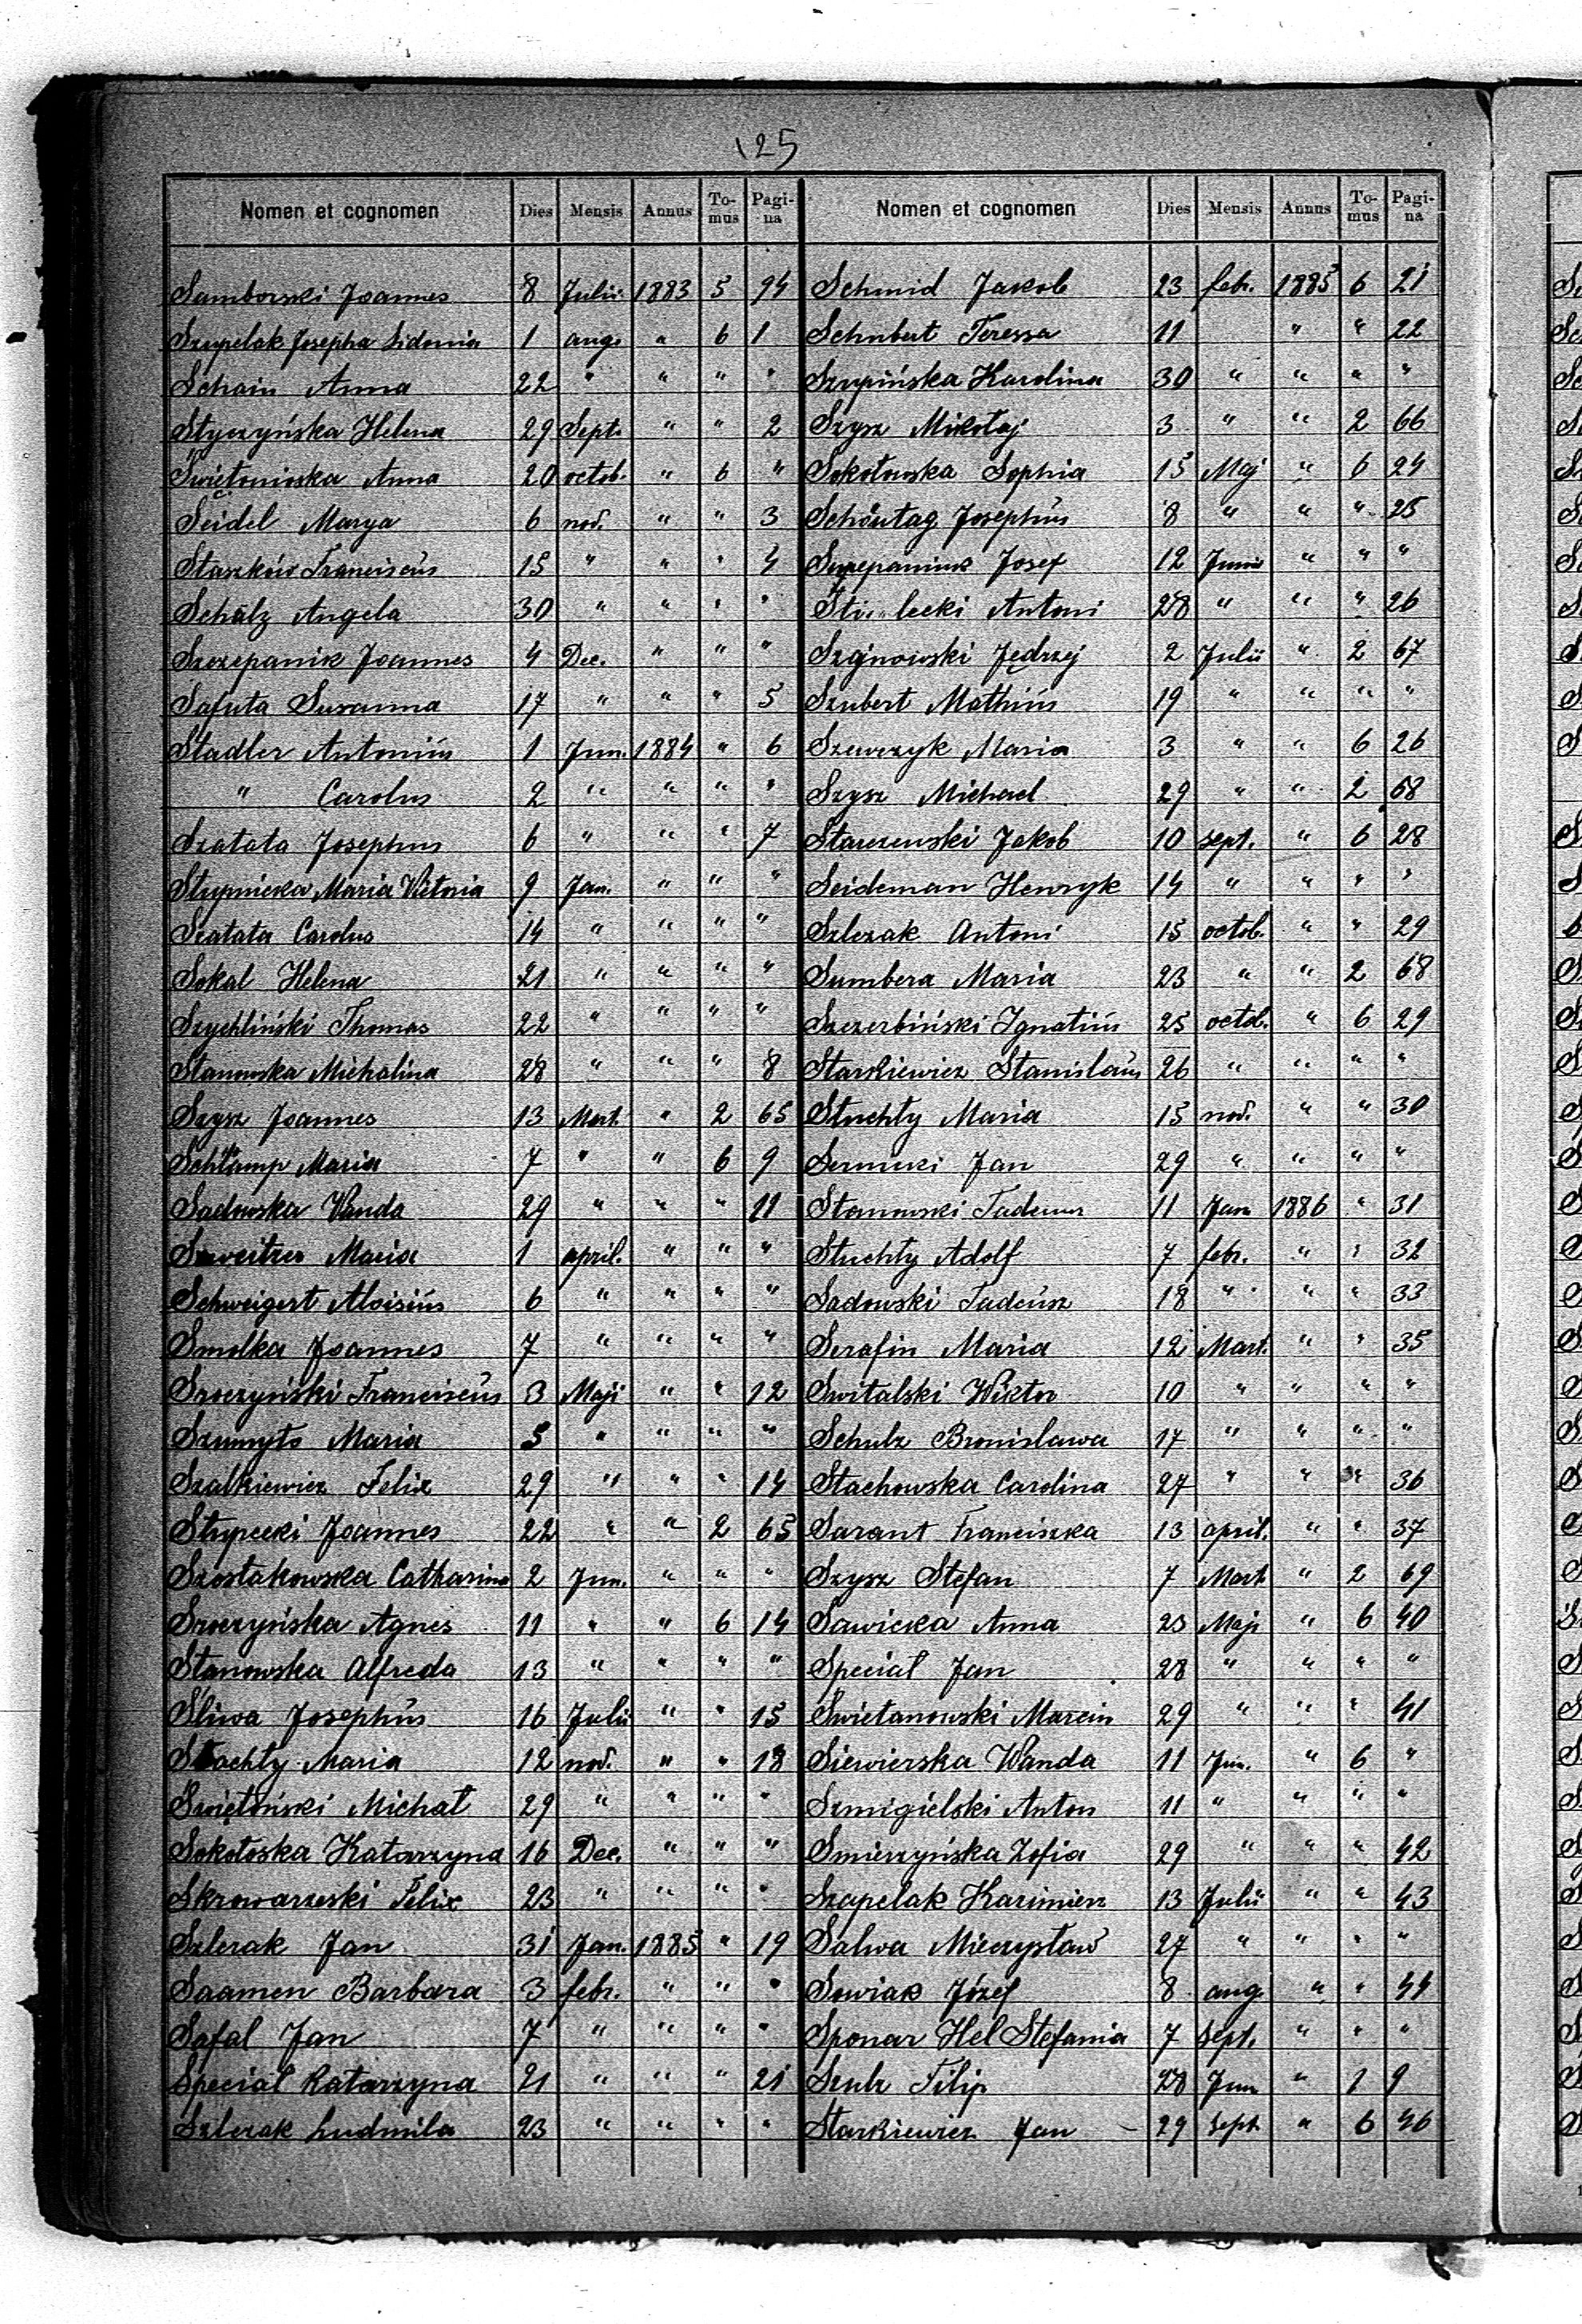 125
Nomen et cognomen Dies Mensis Annus To-mus Pagi-na
Samborski Joannes 8 Julii 1883 5 94
Szupelak Josepha Sidonia 1 aug. " 6 1
Schain Anna 22 " " " "
Styczyńska Helena 29 Sept. " " 2
Świetonioska Anna 20 octob. " 6 "
Seidel Marya 6 nov. " " 3
Staszków Franciscus 15 " " " 4
Schälz Angela 30 " " " "
Szczepanik Joannes 4 Dec. " " "
Safuta Susanna 17 " " " 5
Stadler Antonius 1 Jun. 1884 " 6
" Carolus 2 " " " "
Szatata Josephus 6 " " " 7
Stupnicka Maria Victoria 9 Jan. " " "
Szatata Carolus 14 " " " "
Sokal Helena 21 " " " "
Szychliński Thomas 22 " " " "
Stanowska Michalina 28 " " " 8
Szysz Joannes 13 Mart. " 2 65
Schlamp Maria 7 " " 6 9
Sadowska Wanda 29 " " " 11
Maria 1 april. " " "
Schweigert Aloisius 6 " " " "
Smolka Joannes 7 " " " "
Sroczyński Franciscus 3 Maji " " 12
Szumyto Maria 5 " " " "
Szalkiewicz Felix 29 " " " 14
Stupecki Joannes 22 " " 2 65
Szostakowska Catharina 2 Jun. " " "
Sroczyńska Agnes 11 " " 6 14
Stanowska Alfreda 13 " " " "
Śliwa Josephus 16 Julii " " 15
Stachty Maria 12 nov. " " 18
Swiętoński Michał 29 " " " "
Sokołoska Katarzyna 16 Dec. " " "
Skrowarzeski Felix 23 " " " "
Szlezak Jan 31 Jan. 1885 " 19
Saamen Barbara 3 febr. " " "
Safal Jan 7 " " " "
Special Katarzyna 21 " " " 21
Szlezak Ludmila 23 " " " "
Nomen et cognomen Dies Mensis Annus To-mus Pagi-na
Schmid Jakob 23 febr. 1885 6 21
Schubert Teressa 11 " " 22
Szupińska Karolina 30 " " " "
Szysz Mikołaj 3 " " 2 66
Sokołowska Sophia 15 Maj " 6 24
Schöntag Josephus 8 " " " 25
Josef 12 Junii " " "
Antoni 28 " " " 26
Szajnowski Jędrzej 2 Julii " 2 67
Szubert Mathius 19 " " " "
Szewczyk Maria 3 " " 6 26
Szysz Michael 29 " " 2 68
Starczewski Jakob 10 sept. " 6 28
Seideman Henryk 14 " " " "
Szlezak Antoni 15 octob. " " 29
Sumbera Maria 23 " " 2 68
Szczerbiński Ignatius 25 octob. " 6 29
Starkiewicz Stanislaus 26 " " " "
Stuchty Maria 15 nov. " " 30
Jan 29 " " " "
Stanowski Tadeusz 11 Jan 1886 " 31
Stuchty Adolf 7 febr. " " 32
Sadowski Tadeusz 18 " " " 33
Serafin Maria 12 Mart. " " 35
Switalski Wiktor 10 " " " "
Schulz Bronislawa 17 " " " "
Stachowska Carolina 27 " " " 36
Sarant Franciszka 13 april. " " 37
Szysz Stefan 7 Mart. " 2 69
Sawicka Anna 23 Maji " 6 40
Special Jan 28 " " " "
Swietanowski Marcin 29 " " " 41
Siewierska Wanda 11 Jun. " 6 "
Szmigielski Anton 11 " " " "
Smierzyńska Zofia 29 " " " 42
Szapelak Kazimierz 13 Julii " " 43
Salwa Mieczysław 27 " " " "
Sowiak Józef 8 aug. " " 44
Sponar Hel Stefania 7 Sept. " " "
Szulz Filip 28 Jun " 1 9
Starkiewicz Jan 29 Sept. " 6 46